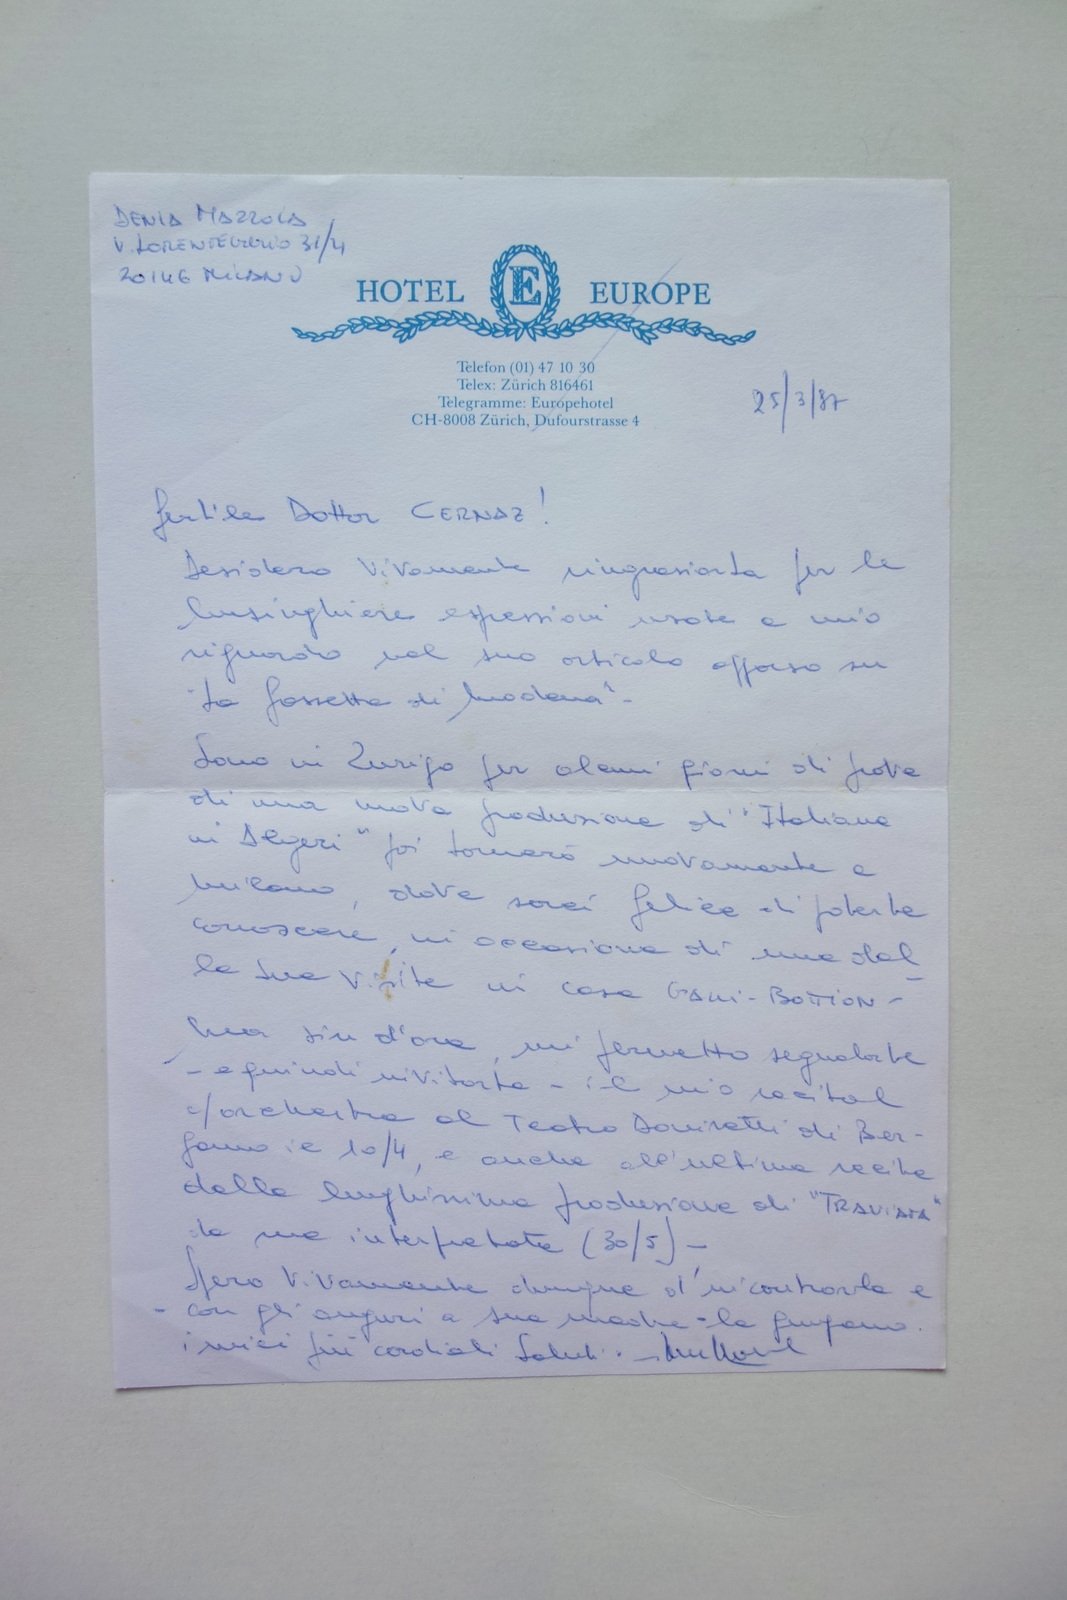 DENIA MAZZOLA
V. LORENTEGGIO 31/4
20146 MILANO
HOTEL E EUROPE
Telefon (01) 47 10 30
Telex: Zürich 816461
Telegramme: Europehotel
CH-8008 Zürich, Dufourstrasse 4
25/3/87
Gentile Dottor CERNAZ!
Desidero vivamente ringraziarLa per le
lusinghiere espressioni usate a mio
riguardo nel suo articolo apparso su
"La Gazzetta di Modena"-
Sono in Zurigo per alcuni giorni di prova
di una nuova produzione di "Italiana
in Algeri" poi tornerò nuovamente a
Milano, dove sarei felice di poterLa
conoscere, in occasione di una del-
le Sue visite in casa GALLI-BOTTION-
Ma sin d'ora, mi permetto segnalarLe
- e quindi invitarLa - il mio recital
c/orchestra al Teatro Donizetti di Ber-
gamo il 10/4, e anche all'ultima recita
della lunghissima produzione di "TRAVIATA"
da me interpretata (30/5)-
Spero vivamente dunque d'incontrarLa e
- con gli auguri a Sua madre - Le giungano
i miei più cordiali Saluti. -